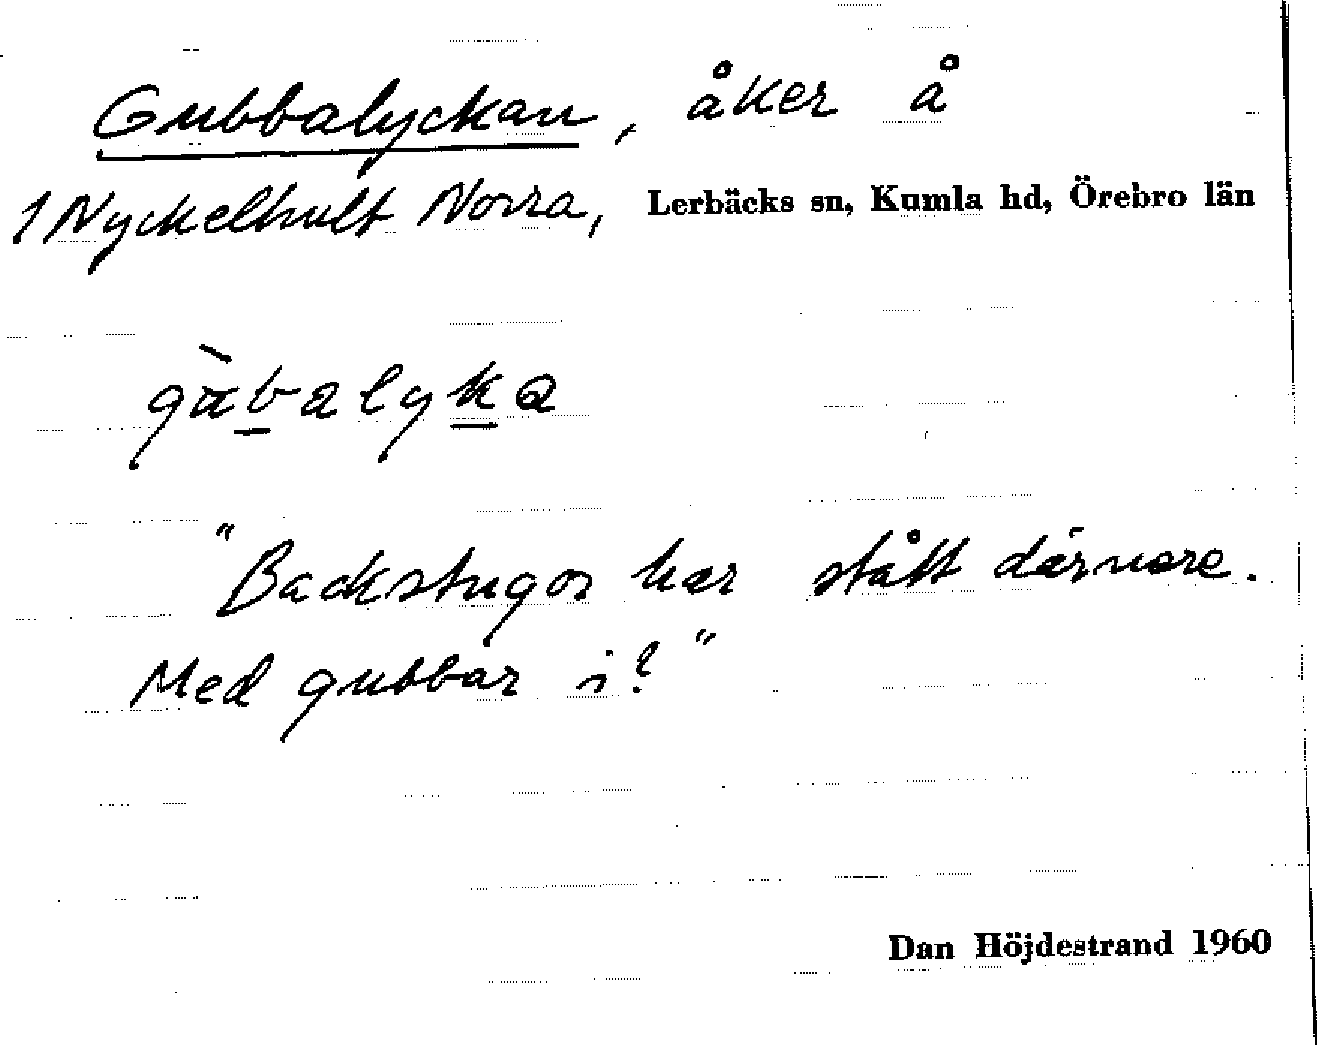 Gubbalyckan, åker å
1 Nyckelhult Norra, Lerbäcks sn, Kumla hd, Örebro län
gùbalyka
"Backstugor har stått därnere.
Med gubbar i?"
Dan Höjdestrand 1960